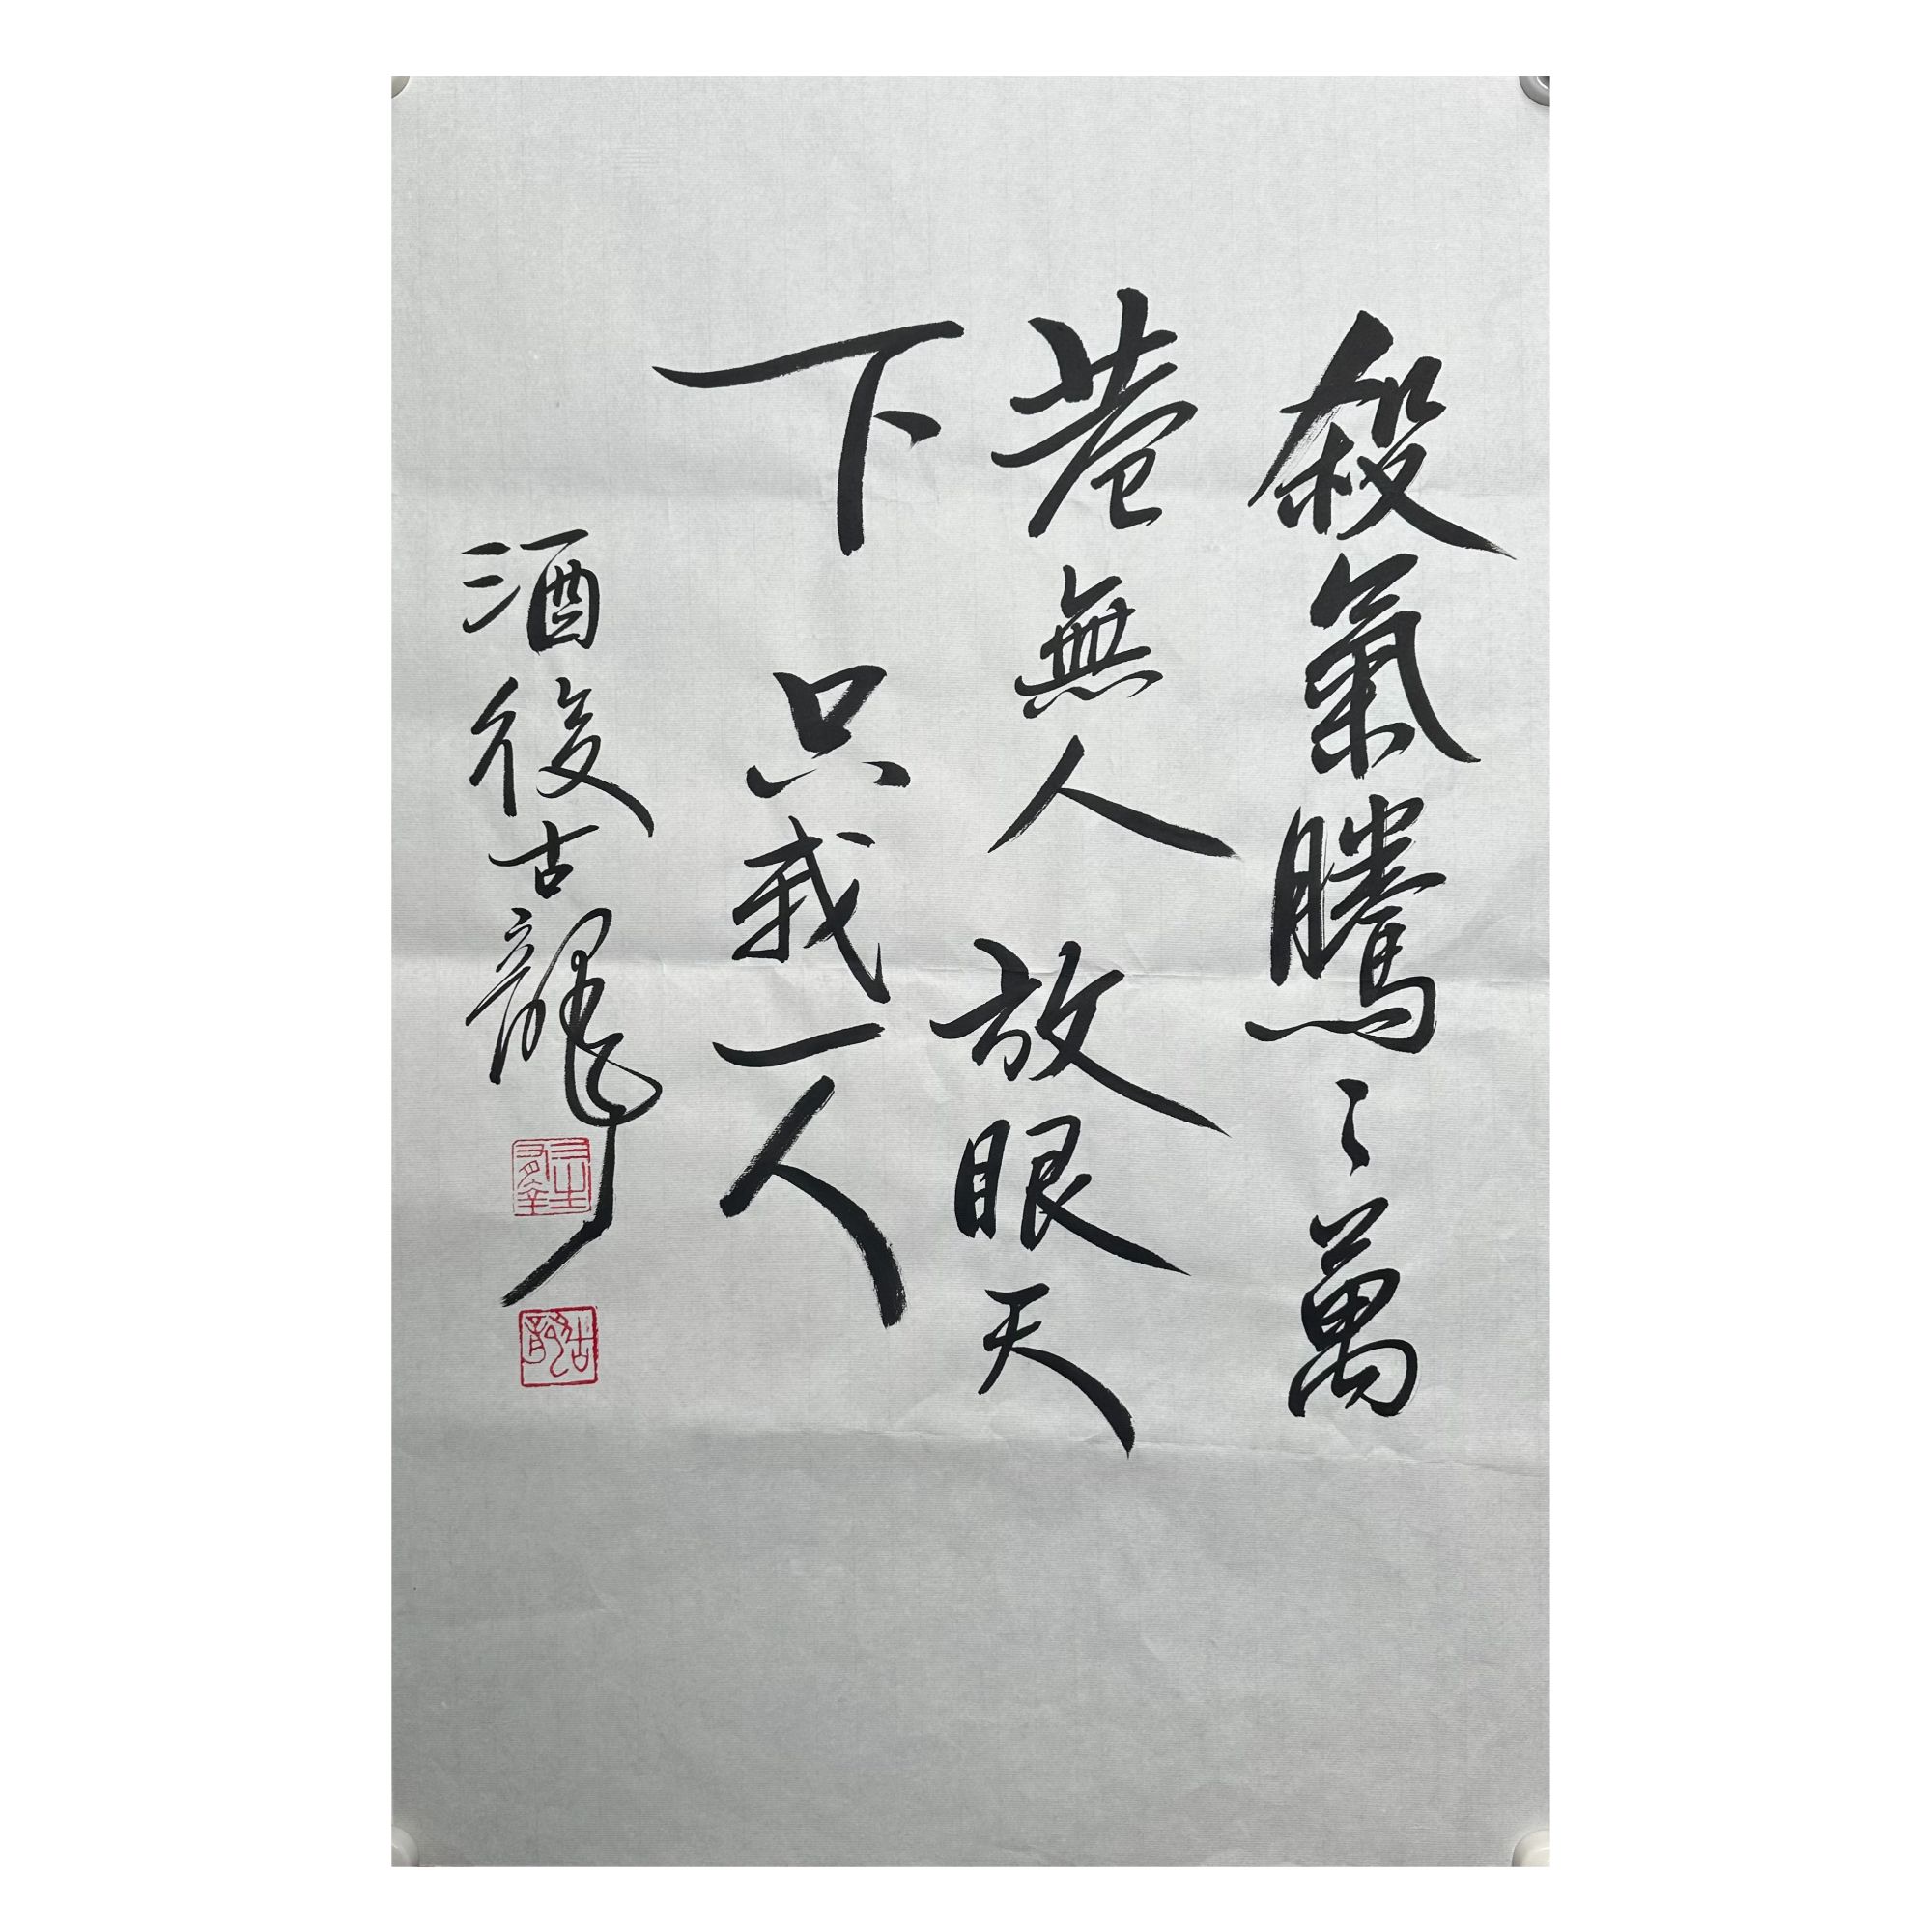 殺氣騰々萬
巷無人放眼天
下只我一人
酒後古龍